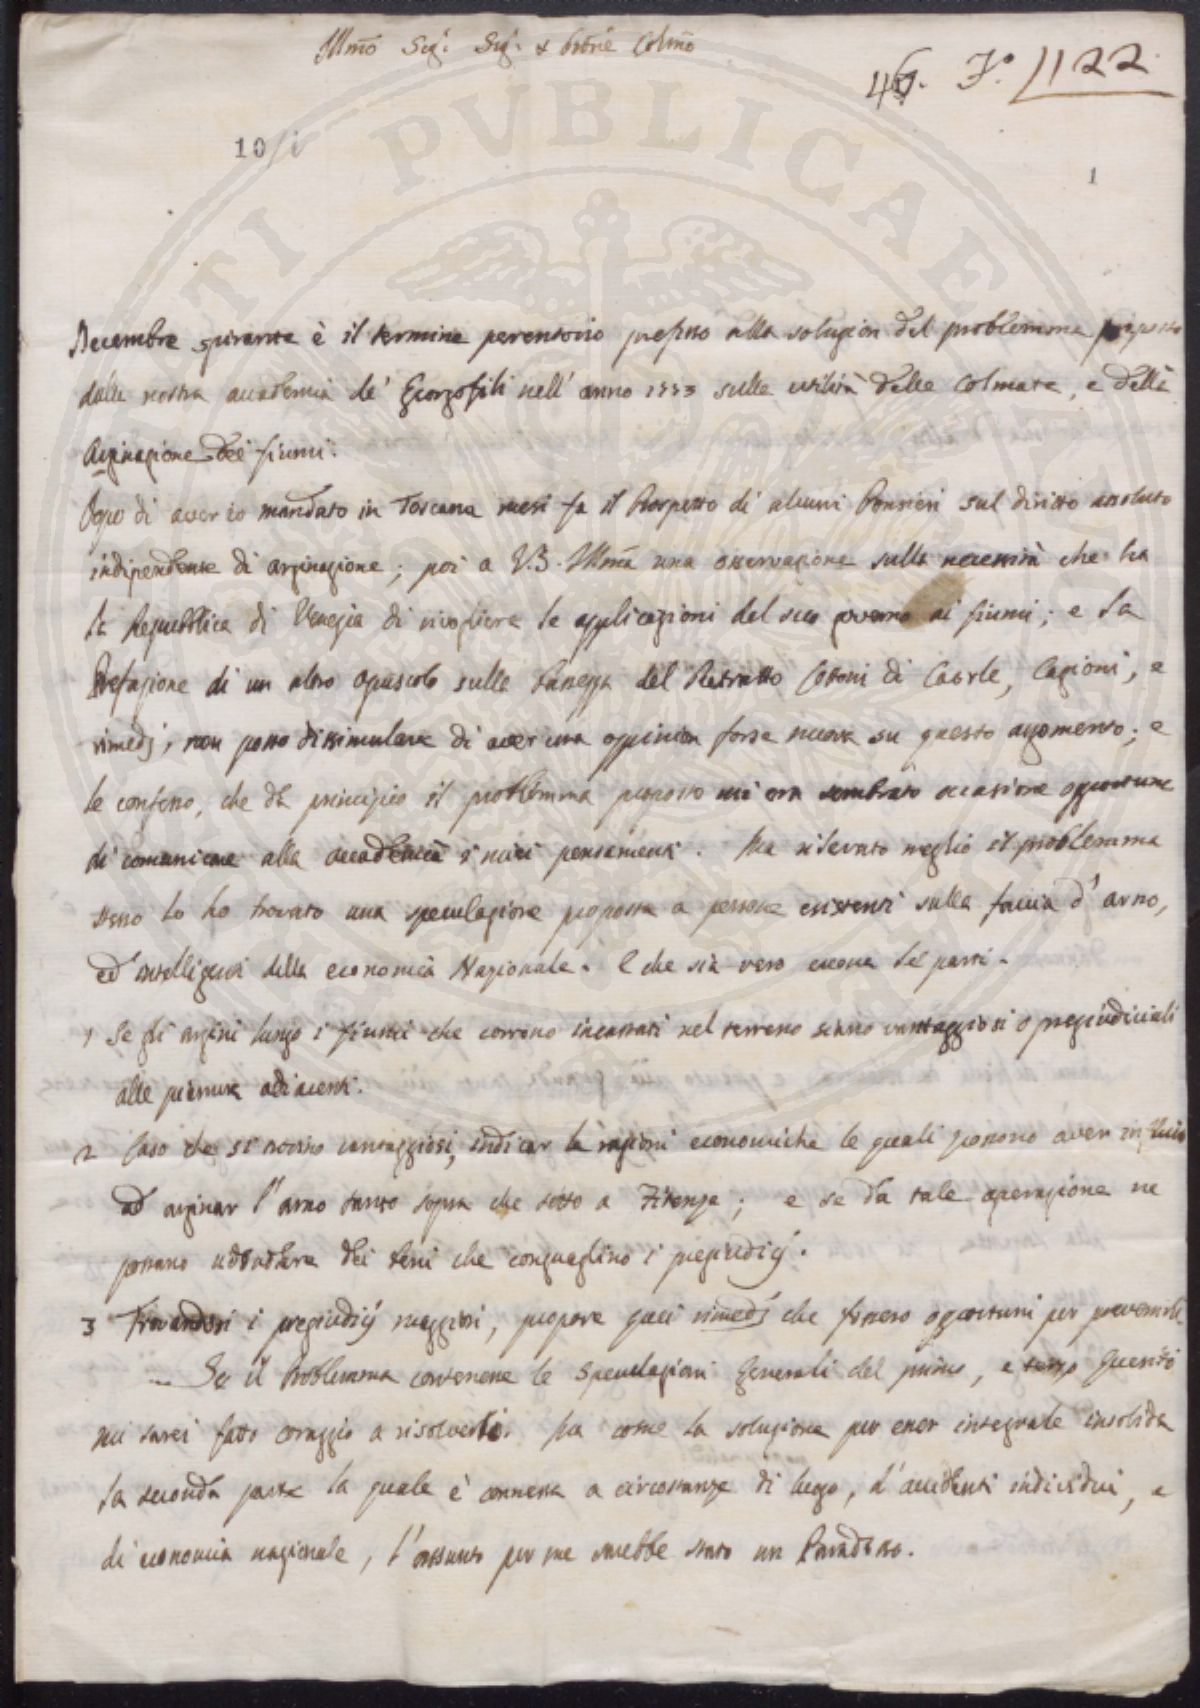 Illmo Sig.r Sig.r e Prone Colmo
46. F.o 1122
10
1
Decembre spirante è il termine perentorio prefisso alla soluzion del problemma proposto
dalla nostra accademia de' Georgofili nell' anno 1773 sulla utilità delle Colmate, e della
Arginazione dei fiumi.
Dopo di aver io mandato in Toscana mesi fa il Prospetto di alcuni Pensieri sul diritto assoluto
indipendente di arginazione; poi a V.S. Illma una osservazione sulla necessità che ha
la Repubblica di Venezia di rivogliere le applicazioni del suo governo ai fiumi; e la
Prefazione di un altro opuscolo sulla del Retratto Cottoni di Caorle, Cagioni, e
rimedj, non posso dissimulare di aver una oppinion forse nuova su questo argomento; e
le confesso, che da principio il problemma proposto mi era sembrato occasione opportuna
di comunicare alla accademia i miei pensamenti. Ma rilevato meglio il problemma
stesso lo ho trovato una speculazione proposta a persone esistenti sulla faccia d' arno,
ed intelligenti della economia Nazionale. E che sia vero eccone le parti.
1 Se gli argini lungo i fiumi che corrono incassati nel terreno sieno vantaggiosi o pregiudiciali
alle pianure adiacenti.
2 Caso che si trovino vantaggiosi, indicar le ragioni economiche le quali possono aver influito
ad arginar l' arno tanto sopra che sotto a Firenze; e se da tale operazione ne
possano addurre dei beni che conguaglino i pregiudizj.
3 Trovandosi i pregiudizj maggiori, propore quei rimedj che fossero opportuni per prevenirli
Se il Problemma contenesse le speculazioni Generali del primo, e terzo Quesito
mi sarei fatto coraggio a risolverlo. Ma come la soluzione per esser integrale insolida
la seconda parte la quale è connessa a circostanze di luogo, d' accidenti individui, e
di economia nazionale, l' assunto per me sarebbe stato un Paradosso.